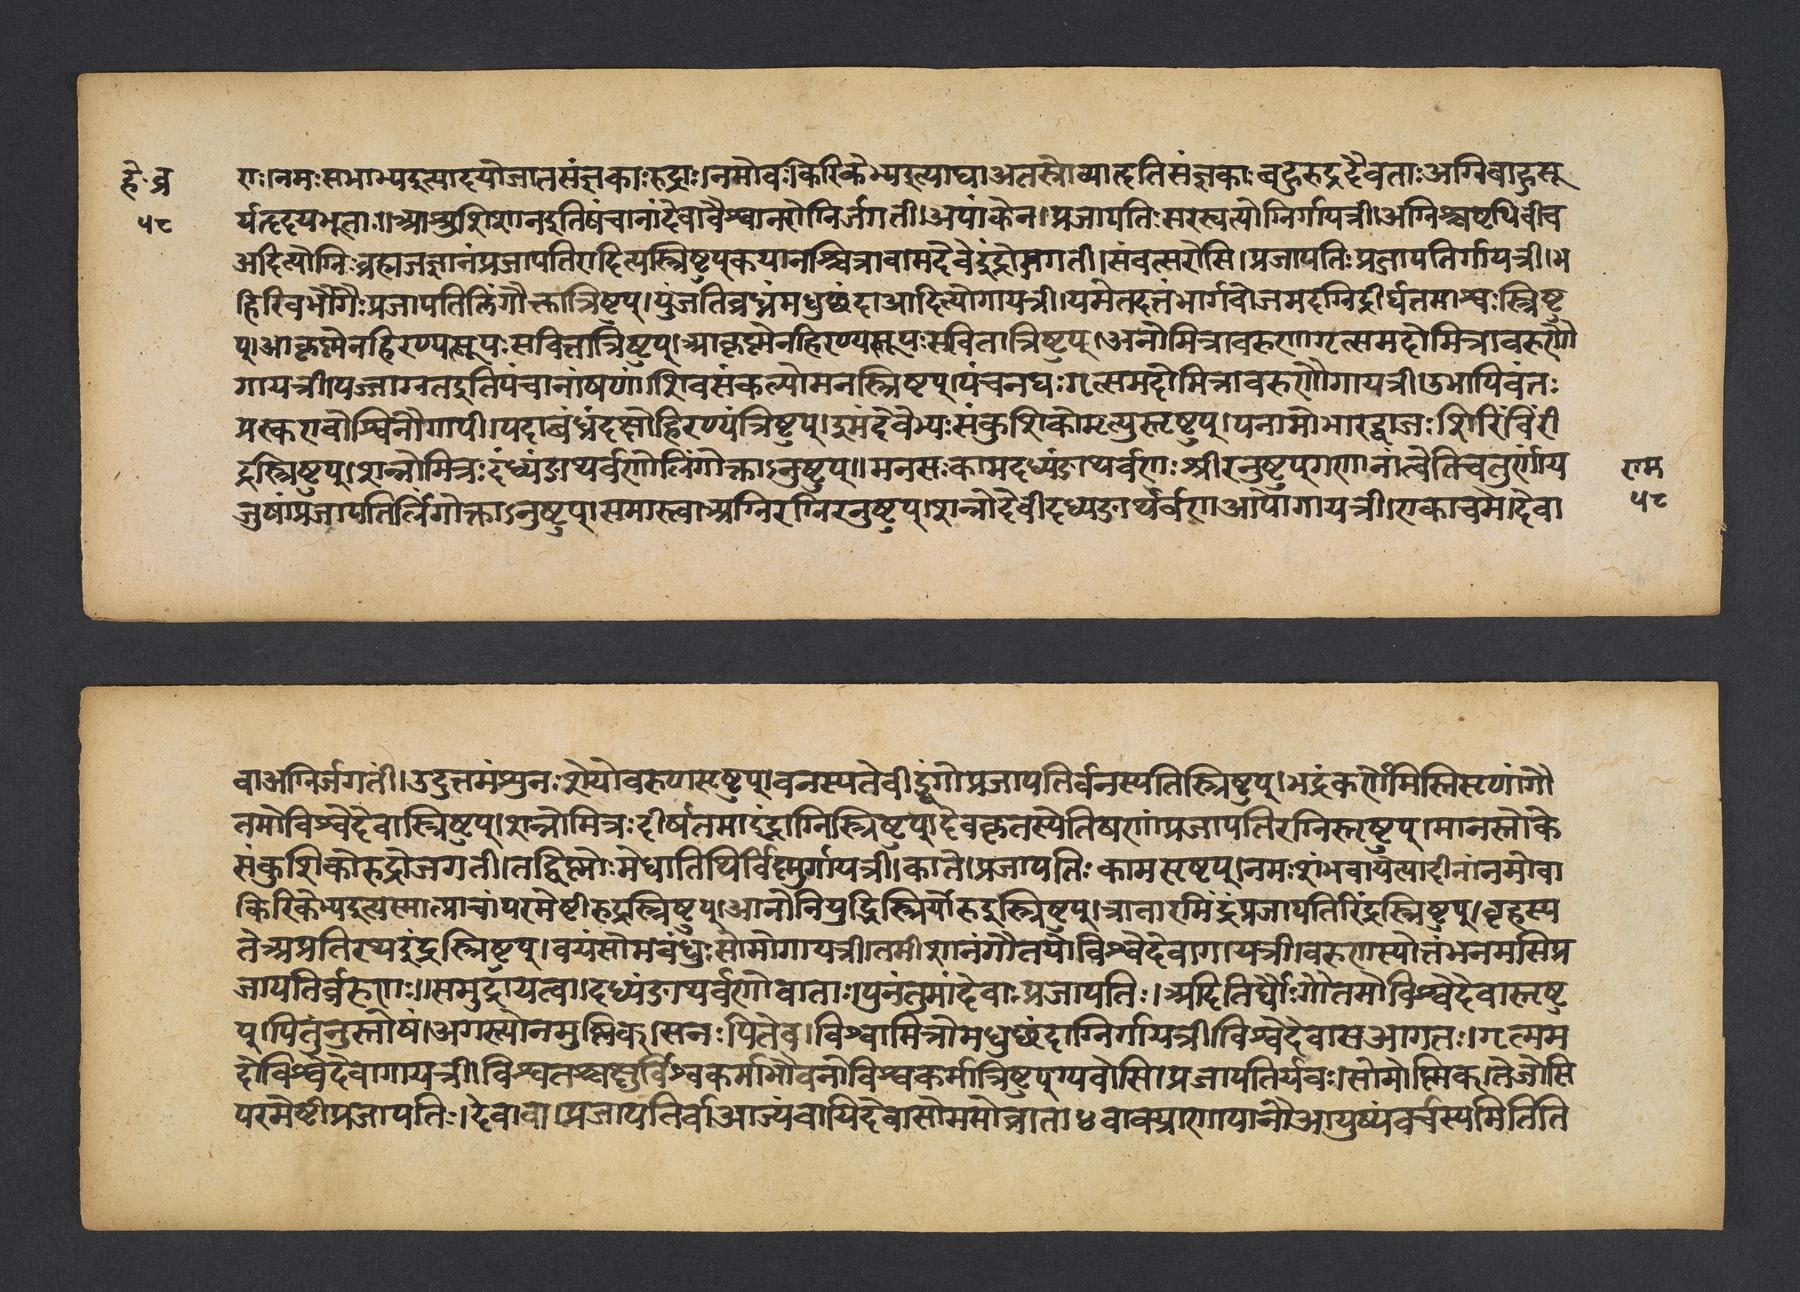 हे.व्र
५८
राः।नमःसभाभ्यइत्यादयोजातसंज्ञकाःरुद्राः।नमोवःकिरिकेभ्यइत्याद्याअतस्रोव्याहृतिसंज्ञकाःबहुरुद्रदैवताःअग्निबाहुसू
र्यहृदयभूताः।।आशुशिशानइतिषंचानांदेवावैश्वानरोग्निर्जगती।अपांकेन।प्रजापतिःसरस्वत्योग्निर्गायत्री।अग्निश्चष्टथिवीच
अदित्योग्निःब्रह्मजज्ञानंप्रजापतिरादित्यस्त्रिष्टुप्कयानश्चित्रावामदेवेइंद्रोजगती।संवत्सरोसि।प्रजापतिःप्रजापतिर्गायत्री।भ
हिरिवभौगैःप्रजापतिलिंगौक्तात्रिष्टुप्।युंजतिव्रध्नंमधुछंदाआदित्योगायत्री।यमेतदत्तंभार्गवोजमदग्निर्द्दीर्घतमाश्वःस्त्रिष्टु
प्।आकृष्मेनहिरण्यस्तूपःसवितात्रिष्टुप्।आकृष्मेनहिरण्यस्तूपःसवितात्रिष्टुप्।अनोमित्रावरुणागृत्समदोमित्रावरुणौ
गायत्री।यज्जाग्नतइतिपंचानांषणां।शिवसंकल्पोमनस्त्रिष्टुप्।पंचनद्यःगृत्समदोमित्रावरुणौगायत्री।उभापिवंतः
प्रस्करावोश्विनौगापी।यदाबंध्नंदक्षोहिरण्यंत्रिष्टुप्।इमंदेवेभ्यःसंकुशिकोमृत्युस्तृष्टुप्।यनामोभारद्वाजःशिरिंविंरी
द्रस्त्रिष्टुप्।शन्नोमित्रःदंध्यंङाथर्वणोलिंगोक्ताऽनुष्टुप्॥मनसःकामदध्यंङाथर्वणःश्रीरनुष्टुप्गणानांत्वेतिचतुर्णांय
जुषांप्रजापतिर्लिंगोक्ताऽनुष्टुप्।समास्त्वाग्नअग्निरग्निरनुष्टुप्।शन्नोदेवीदध्यङाथर्वणआपोगायत्री।एकाचमे।देवा
राम
५८
वाअग्निर्जगती।उदुत्तमंशुनःशेयोवरुणस्तृष्टुप्।वनस्पतेवीड्वंगोप्रजापतिर्वनस्पतिस्त्रिष्टुप्।भद्रंकर्णेमिस्तिसृणांगौ
तमोविश्वेदेवास्त्रिष्टुप्।शन्नोमित्रःदीर्घतमाइंद्राग्निस्त्रिष्टुप्।देवकृतस्येतिषणांप्रजापतिरग्निस्तृष्टुप्।मानस्तोके
संकुशिकोरुद्रोजगती।तद्विष्मोःमेधातिथिर्विष्मुर्गायत्री।काते।प्रजापतिःकामस्तृष्टुप्।नमःशंभवायेत्यादीनांनमोवा
किरिकेभ्यइत्यस्मात्प्राचांपरमेष्टीरुद्रस्त्रिष्टुप्।आनोनियुद्भिस्त्रिर्योरुद्रस्त्रिष्टुप्।त्रातारमिंद्रंप्रजापतिरिंद्रस्त्रिष्टुप्।वृहस्प
तेअप्रतिरथइंद्रस्त्रिष्टुप्।वयंसोमबंधुःसोमोगायत्री।तमीशानंगौतयोविश्वेदेवागायत्री।वरुणस्योत्तंभनमसिप्र
जापतिर्वरुणः॥समुद्रायत्वा।दध्यंङाथर्वणोवाताः।पुनंतुमांदेवाःप्रजापतिः।अदितिर्द्यौःगौतमोविश्वेदेवास्तृष्टु
प्।पितुंनुस्तोषं।अगस्त्योनमुष्मिक्।सनःपितेव।विश्वामित्रोमधुछंदाग्निर्गायत्री।विश्वेदेवासआगत।गृत्सम
दोविश्वेदेवागायत्री।विश्वतश्चक्षुर्विश्वकर्माभौवनोविश्वकर्मात्रिष्टुप्।यवोसि।प्रजापतिर्यवः।सोमोष्मिक्।तेजोसि
परमेष्टीप्रजापतिः।देवावा।प्रजापतिर्वाआज्यंवायिदेवासोमसोत्राता४वाक्प्राणापानौआयुष्यंवर्चस्यमितिति